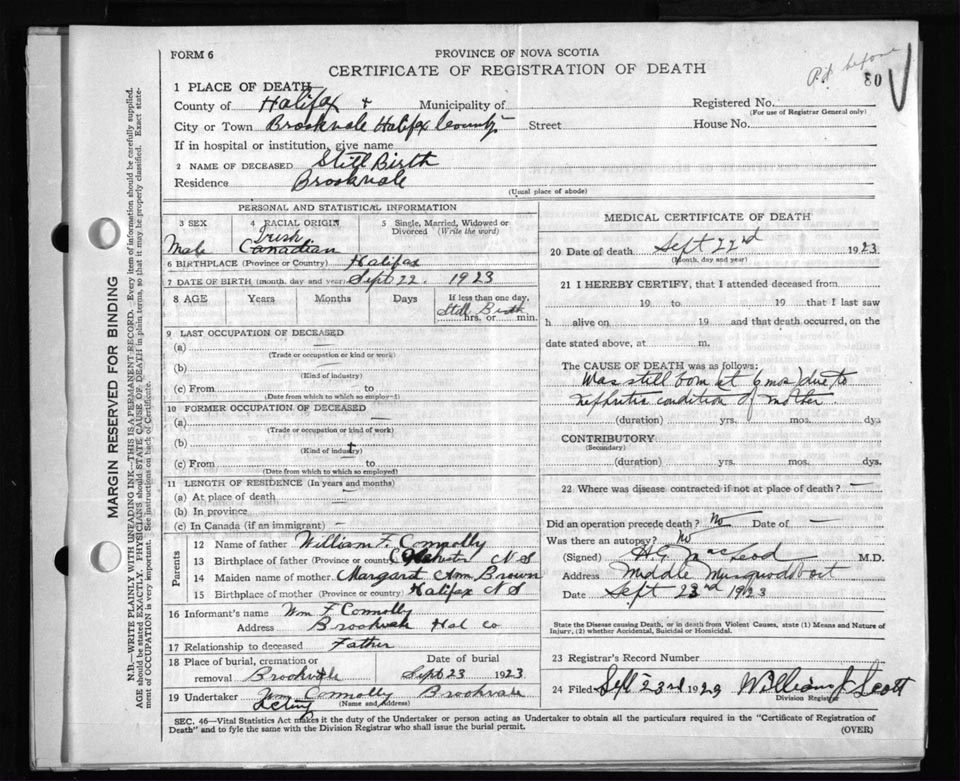 FORM 6
PROVINCE OF NOVA SCOTIA
CERTIFICATE OF REGISTRATION OF DEATH
before
80
1 PLACE OF DEATH
County of Halifax + Municipality of
Registered No.
(For use of Registrar General only)
City or Town Brookvale Halifax County Street House No.
If in hospital or institution, give name
2 NAME OF DECEASED Still Birth
Residence Brookvale
(Usual place of abode)
PERSONAL AND STATISTICAL INFORMATION
3 SEX Male
4 RACIAL ORIGIN Irish Canadian
5 Single, Married, Widowed or Divorced (Write the word)
6 BIRTHPLACE (Province or Country) Halifax
7 DATE OF BIRTH (month, day and year) Sept 22. 1923
8 AGE Years Months Days If less than one day, Still Birth hrs. or min.
9 LAST OCCUPATION OF DECEASED
(a) —
(Trade or occupation or kind or work)
(b) —
(Kind of industry)
(c) From to
(Date from which to which so employed)
10 FORMER OCCUPATION OF DECEASED
(a) —
(Trade or occupation or kind of work)
(b)
(Kind of industry)
(c) From to
(Date from which to which so employed)
11 LENGTH OF RESIDENCE (In years and months)
(a) At place of death —
(b) In province —
(c) In Canada (if an immigrant) —
Parents
12 Name of father William F. Connolly
13 Birthplace of father (Province or country) N S
14 Maiden name of mother Margaret Ann Brown
15 Birthplace of mother (Province or country) Halifax N S
16 Informant's name Wm F Connolly
Address Brookvale Hal Co
17 Relationship to deceased Father
18 Place of burial, cremation or removal Brookvale
Date of burial Sept 23 1923
19 Undertaker Wm Connolly Brookvale
Acting (Name and Address)
MEDICAL CERTIFICATE OF DEATH
20 Date of death Sept 22nd 1923
(Month, day and year)
21 I HEREBY CERTIFY, that I attended deceased from
19 to 19 that I last saw
h alive on 19 and that death occurred, on the
date stated above, at m.
The CAUSE OF DEATH was as follows:
Was still born at 6 mos due to
nephritic condition of mother
(duration) yrs. mos. dys
CONTRIBUTORY
(Secondary)
(duration) yrs. mos. dys.
22 Where was disease contracted if not at place of death? —
Did an operation precede death? No Date of —
Was there an autopsy? No
(Signed) H G MacLeod M.D.
Address Middle Musquodoboit
Date Sept 23rd 1923
State the Disease causing Death, or in death from Violent Causes, state (1) Means and Nature of
Injury, (2) whether Accidental, Suicidal or Homicidal.
23 Registrar's Record Number
24 Filed Sept 23rd 1923 William J Scott
Division Registrar
SEC. 46—Vital Statistics Act makes it the duty of the Undertaker or person acting as Undertaker to obtain all the particulars required in the "Certificate of Registration of
Death" and to fyle the same with the Division Registrar who shall issue the burial permit.
(OVER)
MARGIN RESERVED FOR BINDING
N.B.—WRITE PLAINLY WITH UNFADING INK—THIS IS A PERMANENT RECORD. Every item of information should be carefully supplied.
AGE should be stated EXACTLY. PHYSICIANS should STATE CAUSE OF DEATH in plain terms, so that it may be properly classified. Exact state-
ment of OCCUPATION is very important. See instructions on back of Certificate.